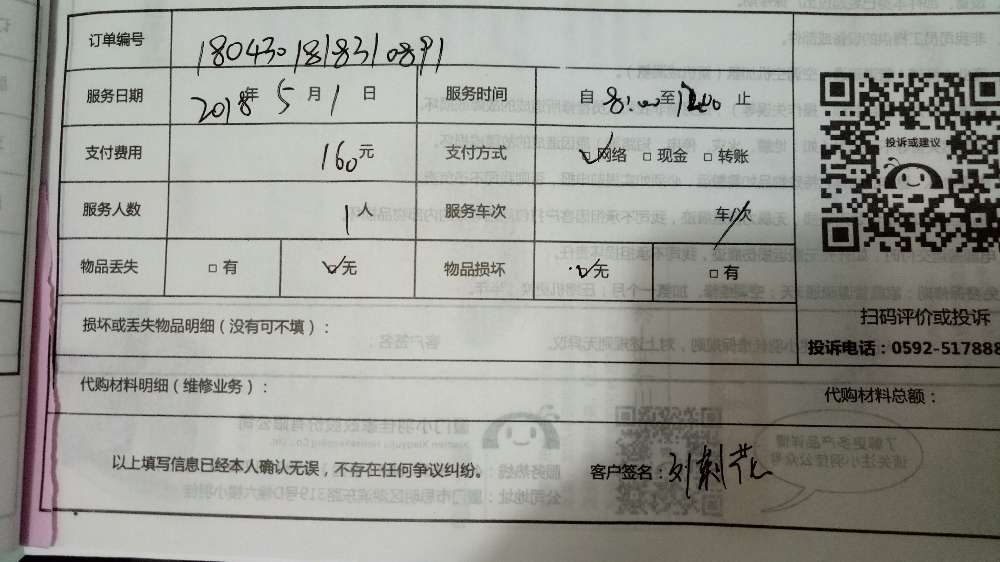 订单编号 1804301818310891
服务日期 2018年 5月 1日 服务时间 自 8:00至12:00止
支付费用 160元 支付方式 ☑网络 □现金 □转账
服务人数 1人 服务车次 车/次
物品丢失 □有 ☑无 物品损坏 ☑无 □有
投诉或建议
扫码评价或投诉
损坏或丢失物品明细（没有可不填）：
投诉电话：0592-517888
代购材料明细（维修业务）： 代购材料总额：
以上填写信息已经本人确认无误，不存在任何争议纠纷。 客户签名：刘